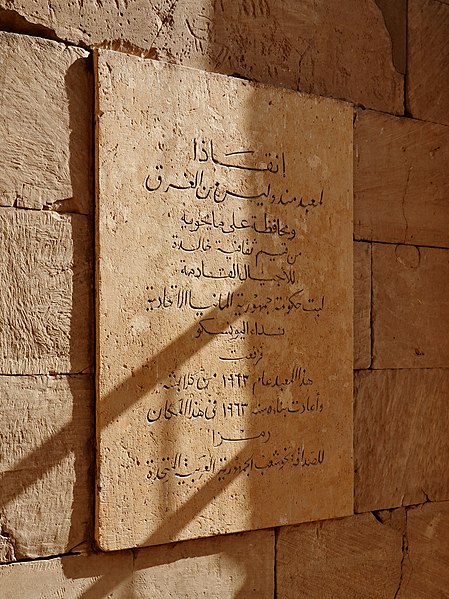 إنقاذا
لمعبد مندوليس من الغرق
ومحافظة على ما يحويه
من قيم ثقافية خالدة
للأجيال القادمة
لبت حكومة جمهورية المانيا الاتحادية
نداء اليونسكو
فرفعت
هذا المعبد عام ١٩٦٢ من كلابشه
وأعادت بناءه سنة ١٩٦٣ في هذا المكان
رمزا
للصداقة نحو شعب الجمهورية العربية المتحدة